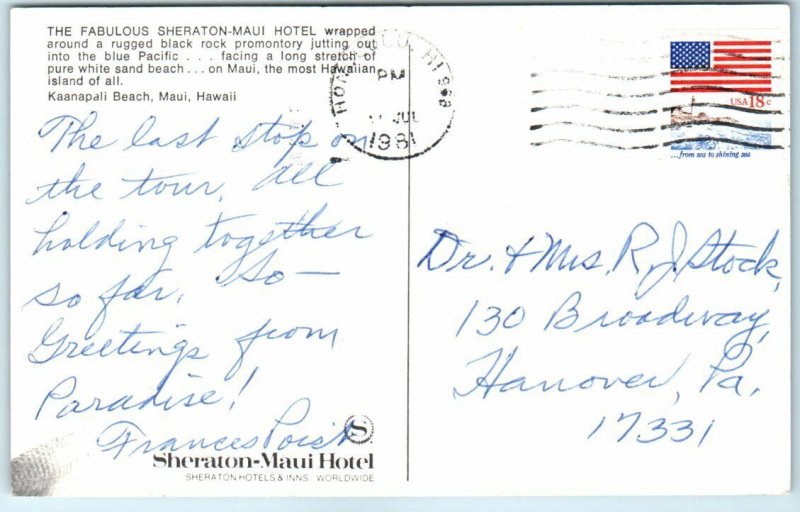 THE FABULOUS SHERATON-MAUI HOTEL wrapped
around a rugged black rock promontory jutting out
into the blue Pacific . . . facing a long stretch of
pure white sand beach . . . on Maui, the most Hawaiian
island of all.
Kaanapali Beach, Maui, Hawaii
The last stop on
the tour, all
holding together
so far. So—
Greetings from
Paradise!
Frances
S
Sheraton-Maui Hotel
SHERATON HOTELS & INNS WORLDWIDE
HI 968
PM
JUL
1981
USA 18c
...from sea to shining sea
Dr. & Mrs. R. J. Stock,
130 Broadway,
Hanover, Pa.
17331